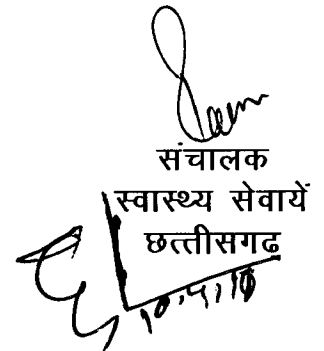 संचालक
स्वास्थ्य सेवायें
छत्तीसगढ